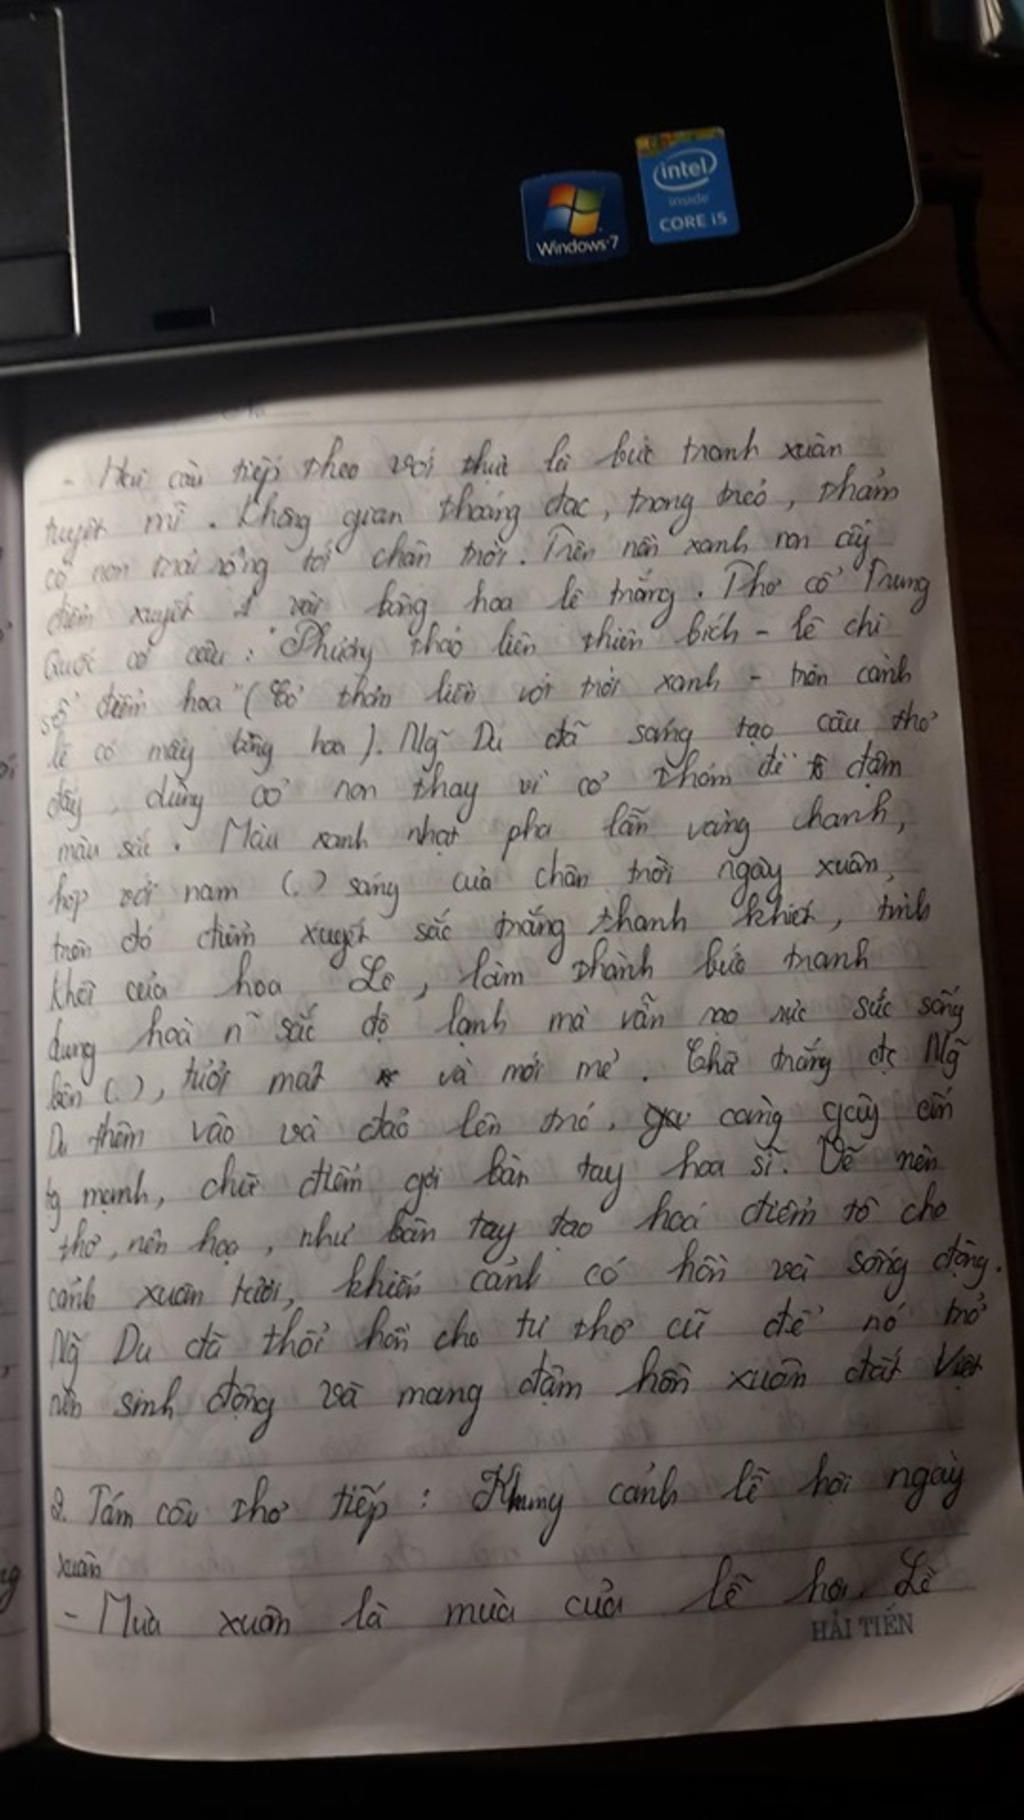 intel
inside
CORE i5
Windows 7
- Hai câu tiếp theo với thực là bức tranh xuân
tuyệt mĩ. Không gian thoáng đạc, trong trẻo, thảm
cỏ non trải rộng tới chân trời. Trên nền xanh non ấy
điểm xuyết 1 vài bông hoa lê trắng. Thơ cổ Trung
Quốc có câu: "Phương thảo liên thiên bích - lê chi
số điểm hoa" (Cỏ thơm liền với trời xanh - trên cành
lê có mấy bông hoa). Ng~ Du đã sáng tạo câu thơ
đấy, dùng cỏ non thay vì cỏ thơm để tô đậm
màu sắc. Màu xanh nhạt pha lẫn vàng chanh,
hợp với nam (.) sáng của chân trời ngày xuân,
trên đó điểm xuyết sắc trắng thanh khiết, tinh
khôi của hoa Lê, làm thành bức tranh
dung hoà n~ sắc độ lạnh mà vẫn rạo rực sức sống
bên (.), tươi mát và mới mẻ. Chữ trắng đc Ng~
Du thêm vào và đảo lên trc', càng gây ấn
tg mạnh, chữ điểm gợi bàn tay hoạ sĩ. Vẽ nên
thơ, nên hoạ, như bàn tay tạo hoá điểm tô cho
cảnh xuân tươi, khiến cảnh có hồn và sống động.
Ng~ Du đã thổi hồn cho tứ thơ cũ để nó trở
nên sinh động và mang đậm hồn xuân đất Việt
2. Tám câu thơ tiếp: Khung cảnh lễ hội ngày
xuân
- Mùa xuân là mùa của lễ hội. Lễ
HẢI TIẾN